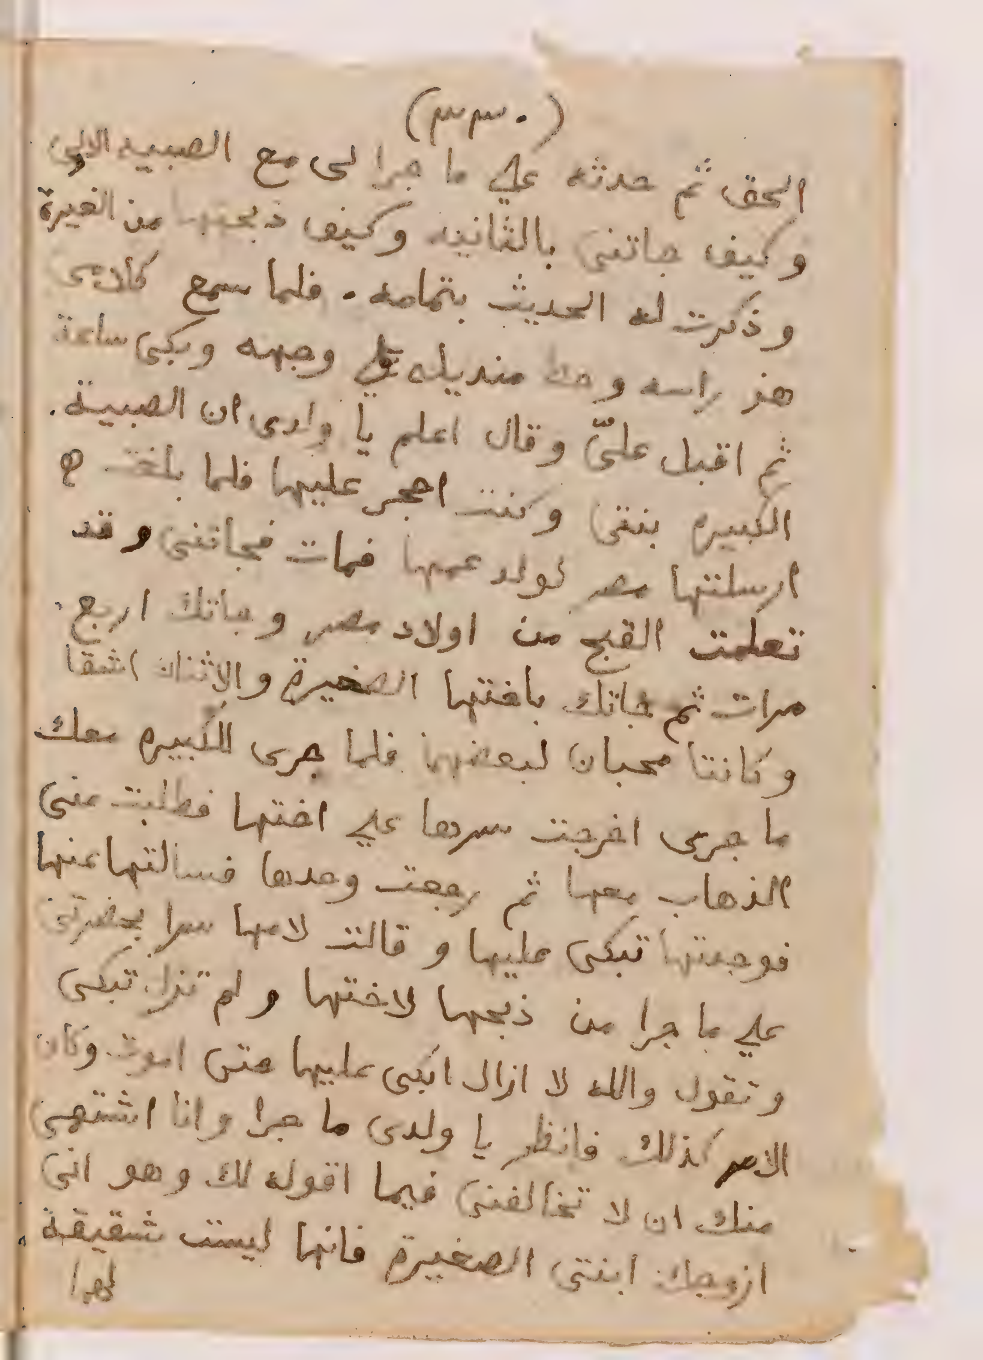 (٣٣٠)
الحق ثم حدثه على ما جرا لى مع الصبيه الاولى
وكيف جاتنى بالثانيه وكيف ذبحتها من الغيرة
وذكرت له الحديث بتمامه . فلما سمع كلامى
هز راسه وحط منديله على وجهه وبكى ساعة
ثم اقبل علىّ وقال اعلم يا ولدى ان الصبية .
الكبيره بنتى وكنت احجر عليها فلما بلغت
ارسلتها مصر لولد عمها فمات فجاتنى وقد
تعلمت القبح من اولاد مصر وجاتك اربع
مرات ثم جاتك باختها الصغيرة والاثنان اشقا
وكانتا محبان لبعضهما فلما جرى للكبيره معك
ما جرى اخرجت سرها على اختها فطلبت منى
الذهاب معها ثم رجعت وحدها فسالتها عنها
فوجدتها تبكى عليها وقالت لامها سرا بحضرتى
على ما جرا من ذبحها لاختها ولم تزل تبكى
وتقول والله لا ازال ابكى عليها حتى اموت وكان
الامر كذلك فانظر يا ولدى ما جرا وانا اشتهى
منك ان لا تخالفنى فيما اقوله لك وهو انى
ازوجك ابنتى الصغيرة فانها ليست شقيقة .
لهما